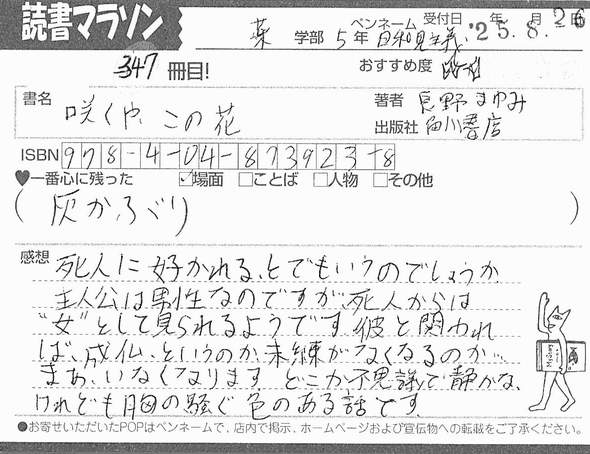 読書マラソン
薬 学部 5 年 ペンネーム 日和見主義 受付日 '25年 8.月 26日
347 冊目!
おすすめ度
書名 咲くや、この花
著者 長野まゆみ
出版社 角川書店
ISBN 978-4-04-873923-8
♥一番心に残った ☑場面 □ことば □人物 □その他
( 灰かぶり )
感想 死人に好かれる、とでもいうのでしょうか
主人公は男性なのですが、死人からは
"女"として見られるようです。彼と関われ
ば、成仏、というのか、未練がなくなるのか…
まあ、いなくなります。どこか不思議で静かな、
けれども胸の騒ぐ色のある話です。
●お寄せいただいたPOPはペンネームで、店内で掲示、ホームページおよび宣伝物への転載をご了承ください。